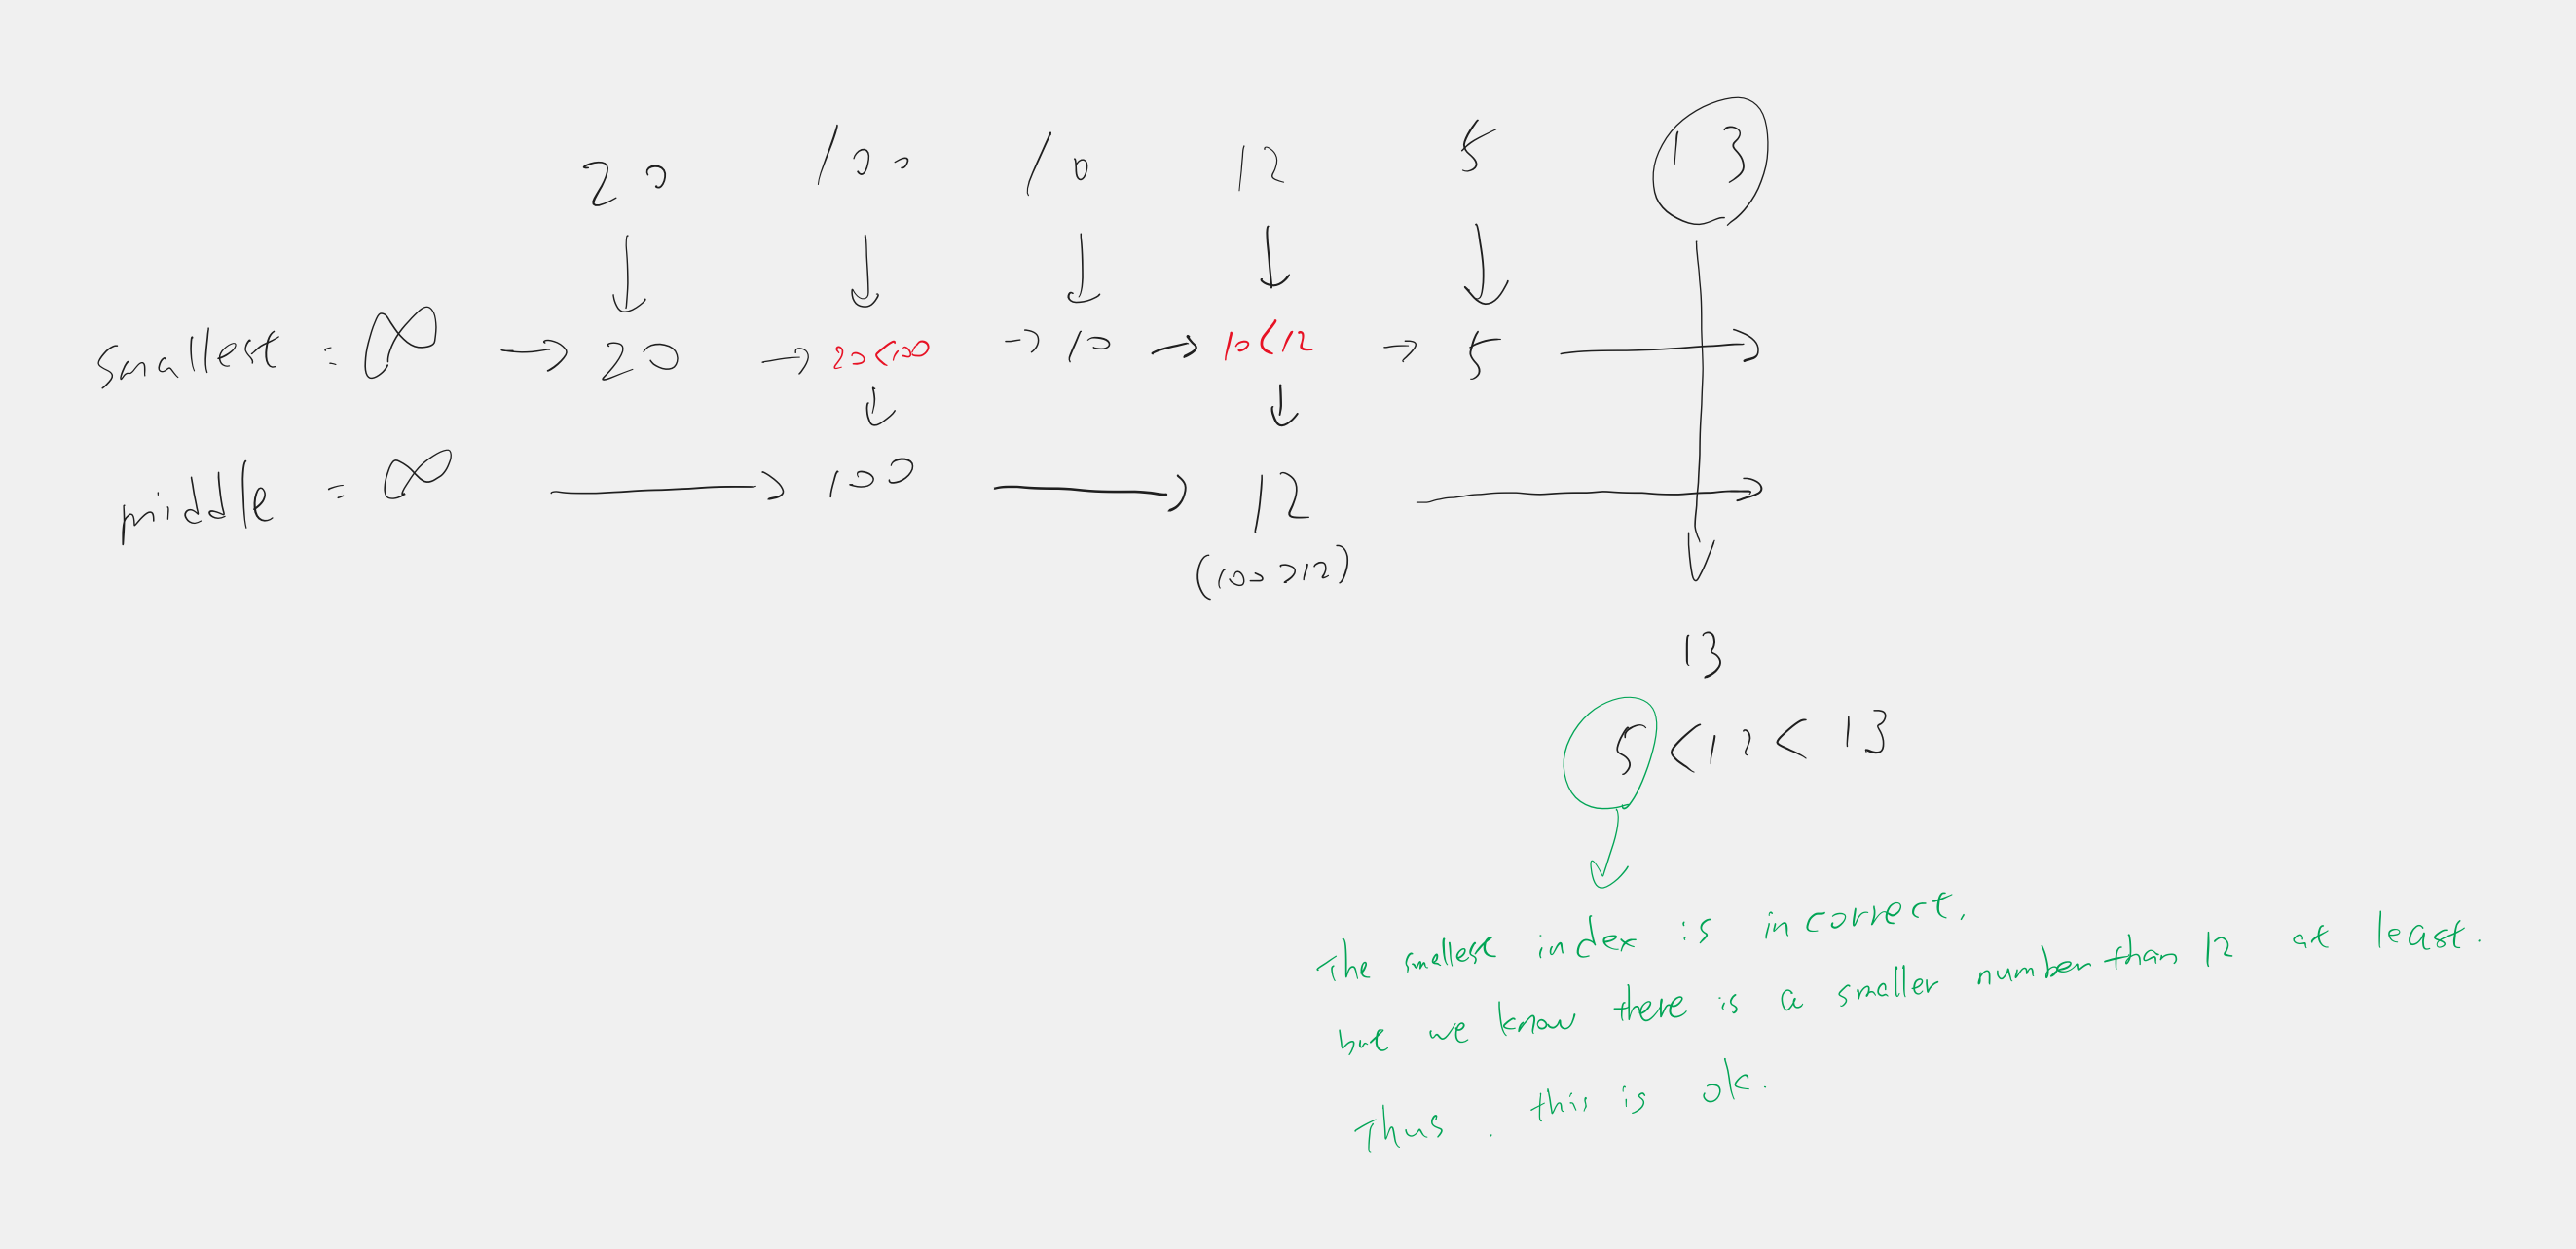 20 100 10 12 5 13
smallest = ∞ → 20 → 20<100 → 10 → 10<12 → 5
middle = ∞ → 100 → 12
(100>12)
13
5 < 12 < 13
The smallest index is incorrect.
but we know there is a smaller number than 12 at least.
Thus. this is ok.